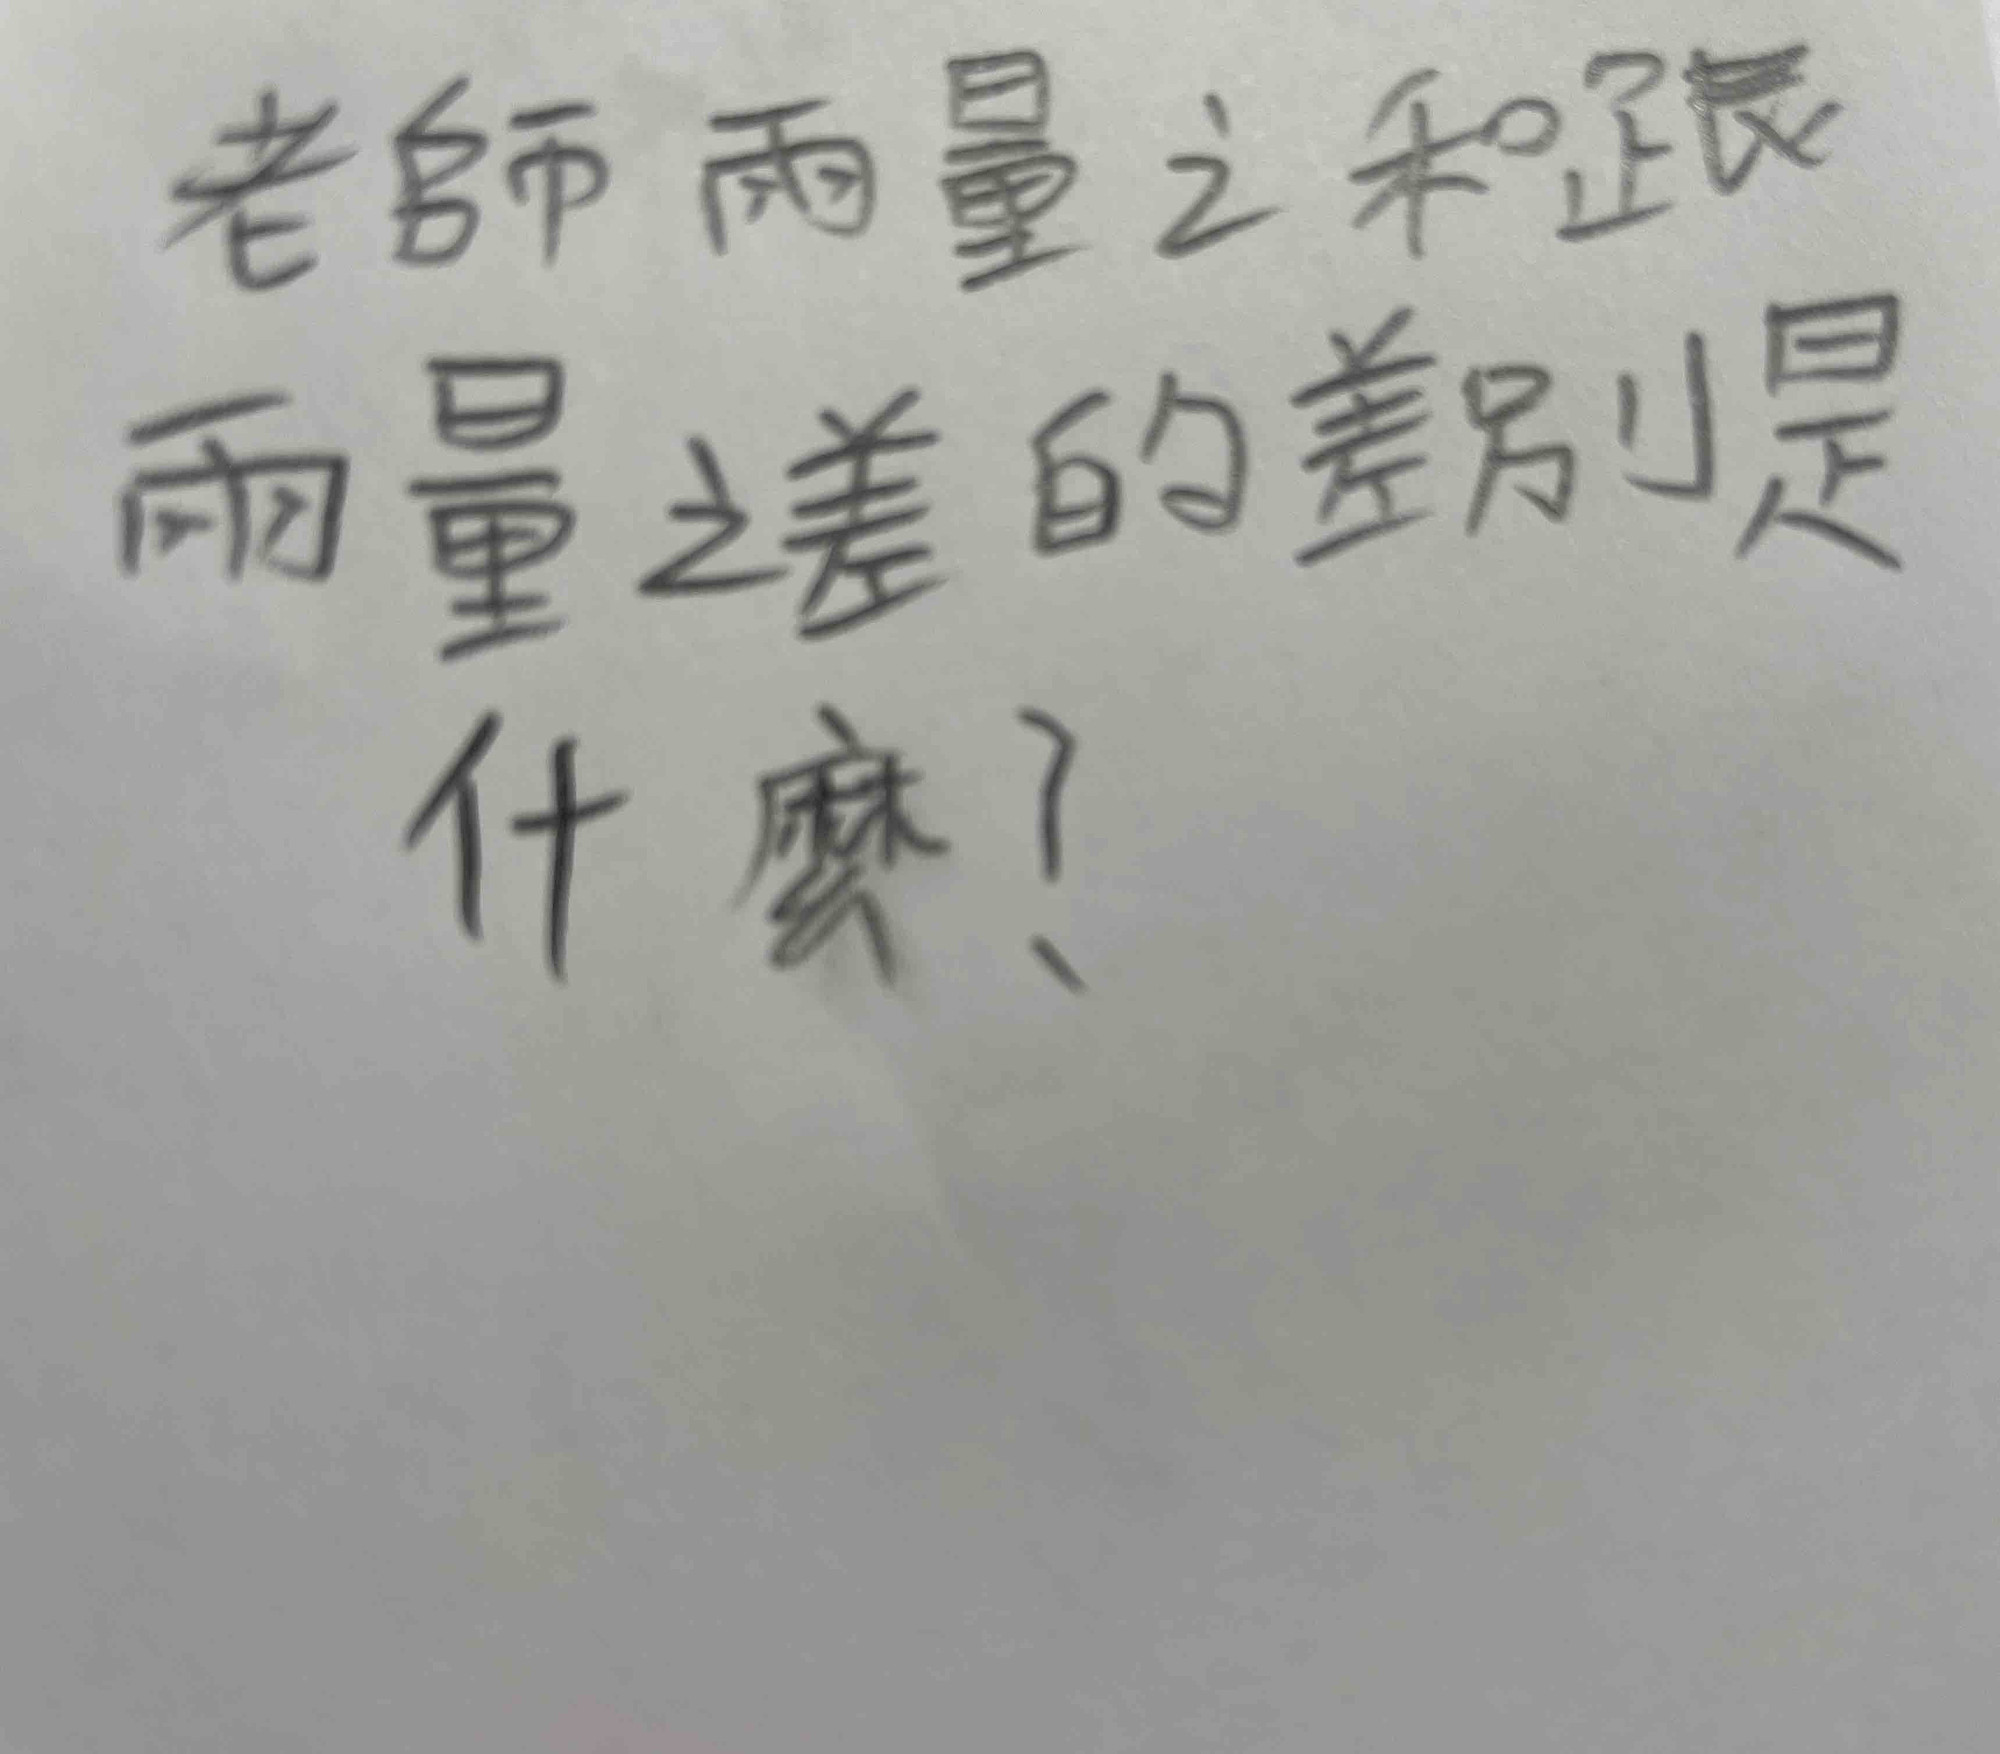 老師雨量之和跟
雨量之差的差別是
什麼?